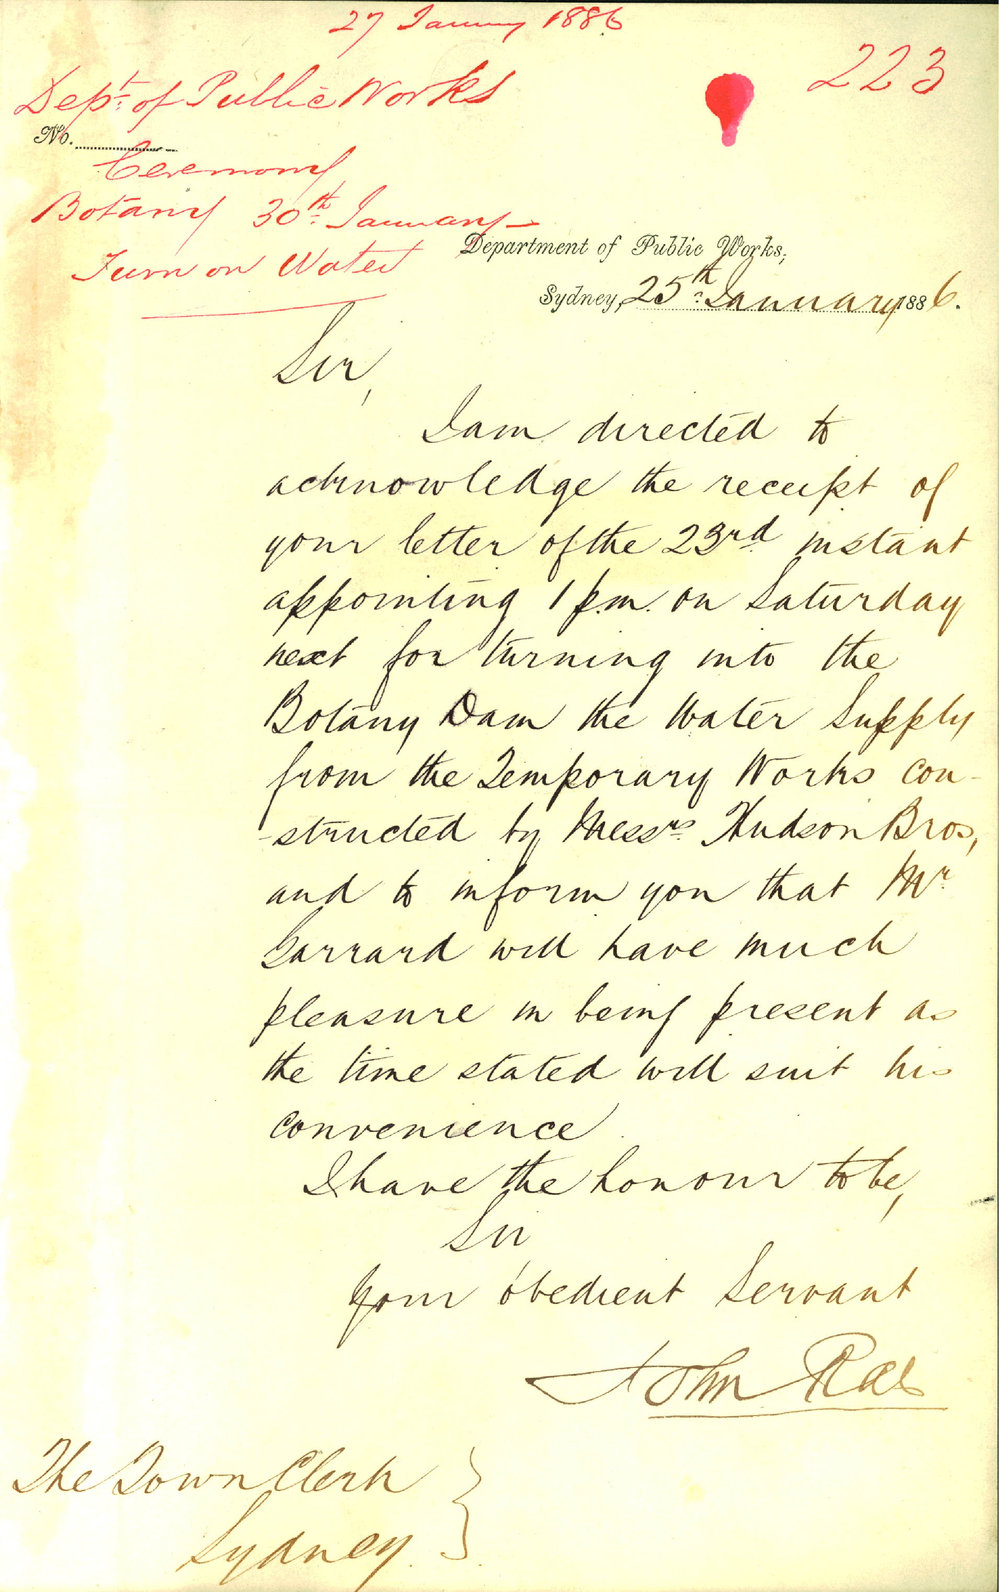 27 January 1886
223
Dept. of Public Works
No.
Ceremony
Botany 30th. January
Turn on Water
Department of Public Works,
Sydney, 25th January 1886.
Sir,
I am directed to
acknowledge the receipt of
your letter of the 23rd instant
appointing 1 p.m. on Saturday
next for turning into the
Botany Dam the Water Supply
from the Temporary Works con-
-structed by Messrs Hudson Bros,
and to inform you that Mr.
Garrard will have much
pleasure in being present as
the time stated will suit his
convenience.
I have the honour to be,
Sir
Your obedient Servant
John Rae
The Town Clerk
Sydney.